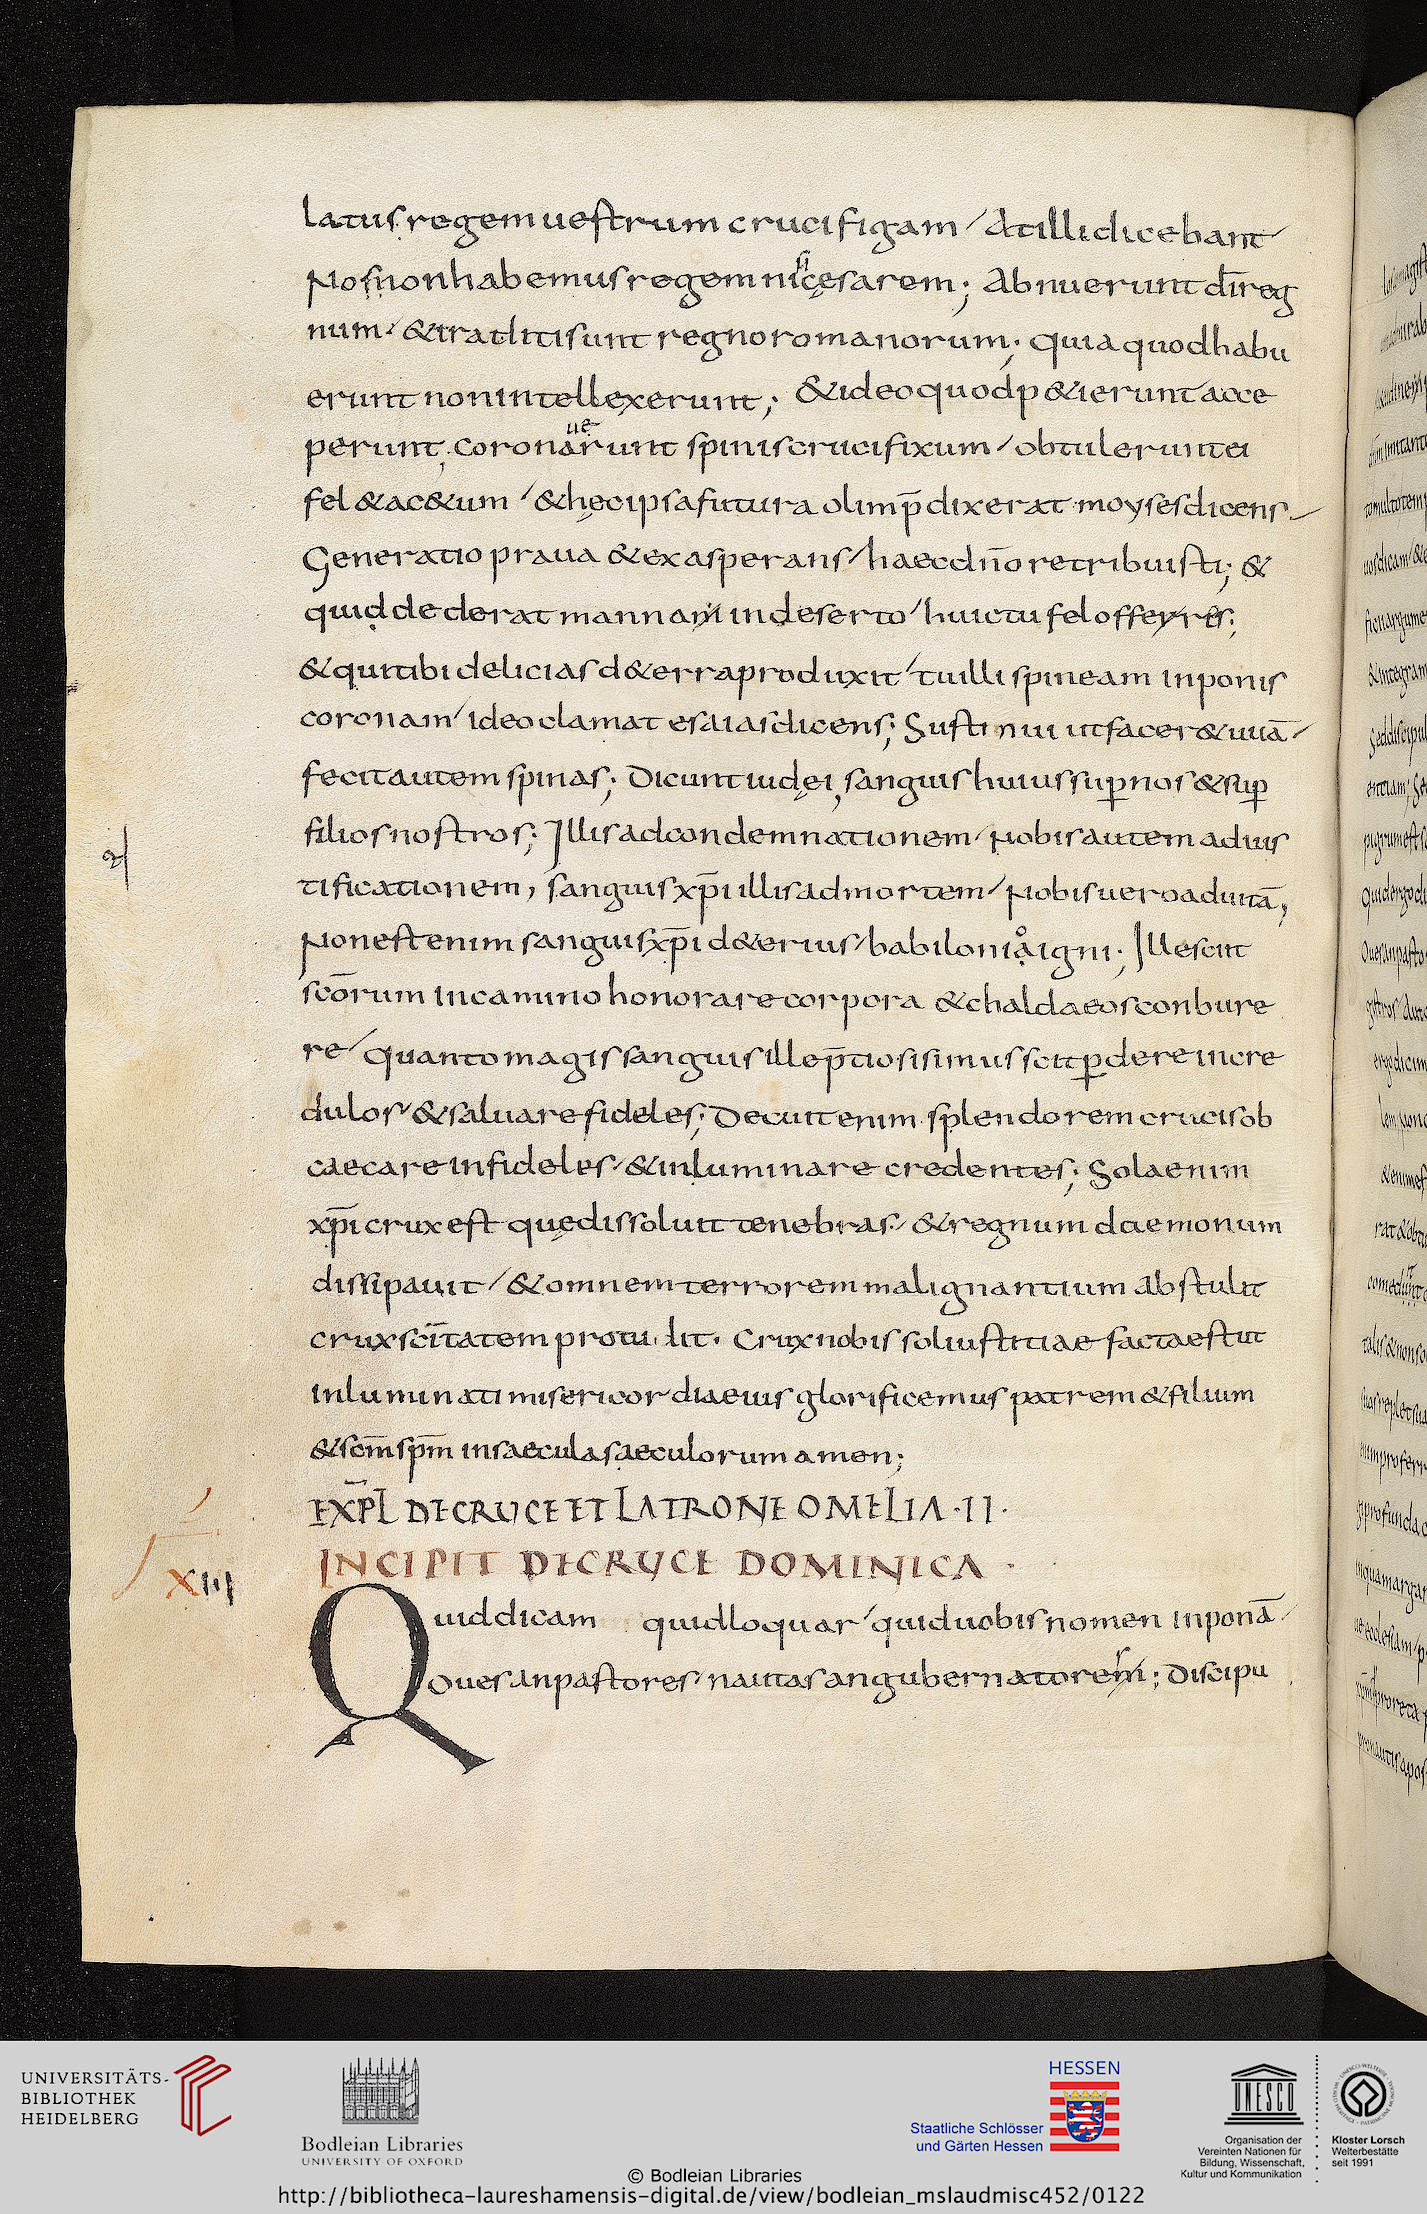 latus regem uestrum crucifigam / At illi dicebant /
Nos non habemus regem ni si cęsarem; Abnuerunt dī reg
num / & traditi sunt regno romanorum; quia quod habu
erunt non intellexerunt; & ideo quod p&ierunt acce
perunt; coronauerunt spinis crucifixum / obtulerunt ei
fel & ac&um / & hęc ipsa futura olim p̄dixerat moyses dicens /
Generatio praua & exasperans / haec dn̄o retribuisti; &
quid dederat mannam in deserto / huic tu fel offerres;
& qui tibi delicias d& erra produxit / tu illi spineam inponis
coronam / ideo clamat esaias dicens; Sustinui ut facer& uuā /
fecit autem spinas; Dicunt iudęi, sanguis huius sup̄ nos & sup̄
filios nostros; Illis ad condemnationem / Nobis autem ad ius
tificationem, sanguis xp̄i illis ad mortem / Nobis uero ad uitā;
Non est enim sanguis xp̄i d&erius / babilonio igni; Ille scit
scōrum in camino honorare corpora & chaldaeos conbure
re / quanto magis sanguis ille p̄tiosisimus scit p̄dere incre
dulos / & saluare fideles; Decuit enim splendorem crucis ob
caecare infideles / & inluminare credentes; Sola enim
xp̄i crux est quę dissoluit tenebras / & regnum daemonum
dissipauit / & omnem terrorem malignantium abstulit
crux scītatem protulit. Crux nobis sol iustitiae facta est ut
inluminati misericordia eius glorificemus patrem & filium
& scm̄ spm̄ in saecula saeculorum amen;
EXPL̄ DE CRUCE ET LATRONE OMELIA · II ·
INCIPIT DE CRUCE DOMINICA ·
XIII
Quid dicam quid loquar / quid uobis nomen inponā /
Oues an pastores / nautas an gubernatores; Discipu
UNIVERSITÄTS-
BIBLIOTHEK
HEIDELBERG
Bodleian Libraries
UNIVERSITY OF OXFORD
HESSEN
Staatliche Schlösser
und Gärten Hessen
UNESCO
Organisation der
Vereinten Nationen für
Bildung, Wissenschaft,
Kultur und Kommunikation
Kloster Lorsch
Welterbestätte
seit 1991
© Bodleian Libraries
http://bibliotheca-laureshamensis-digital.de/view/bodleian_mslaudmisc452/0122